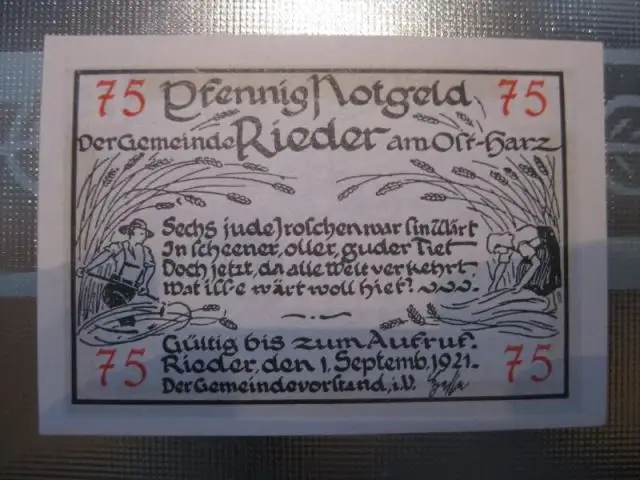 75 Pfennig Notgeld 75
Der Gemeinde Rieder am Ost-Harz
Sechs jude Jroschen war sin Wärt
In scheener, oller, guder Tiet
Doch jetzt, da alle Welt verkehrt.
Wat iss e wärt woll hiet?
Gültig bis zum Aufruf.
75 Rieder, den 1. Septemb. 1921. 75
Der Gemeindevorstand, i.V.